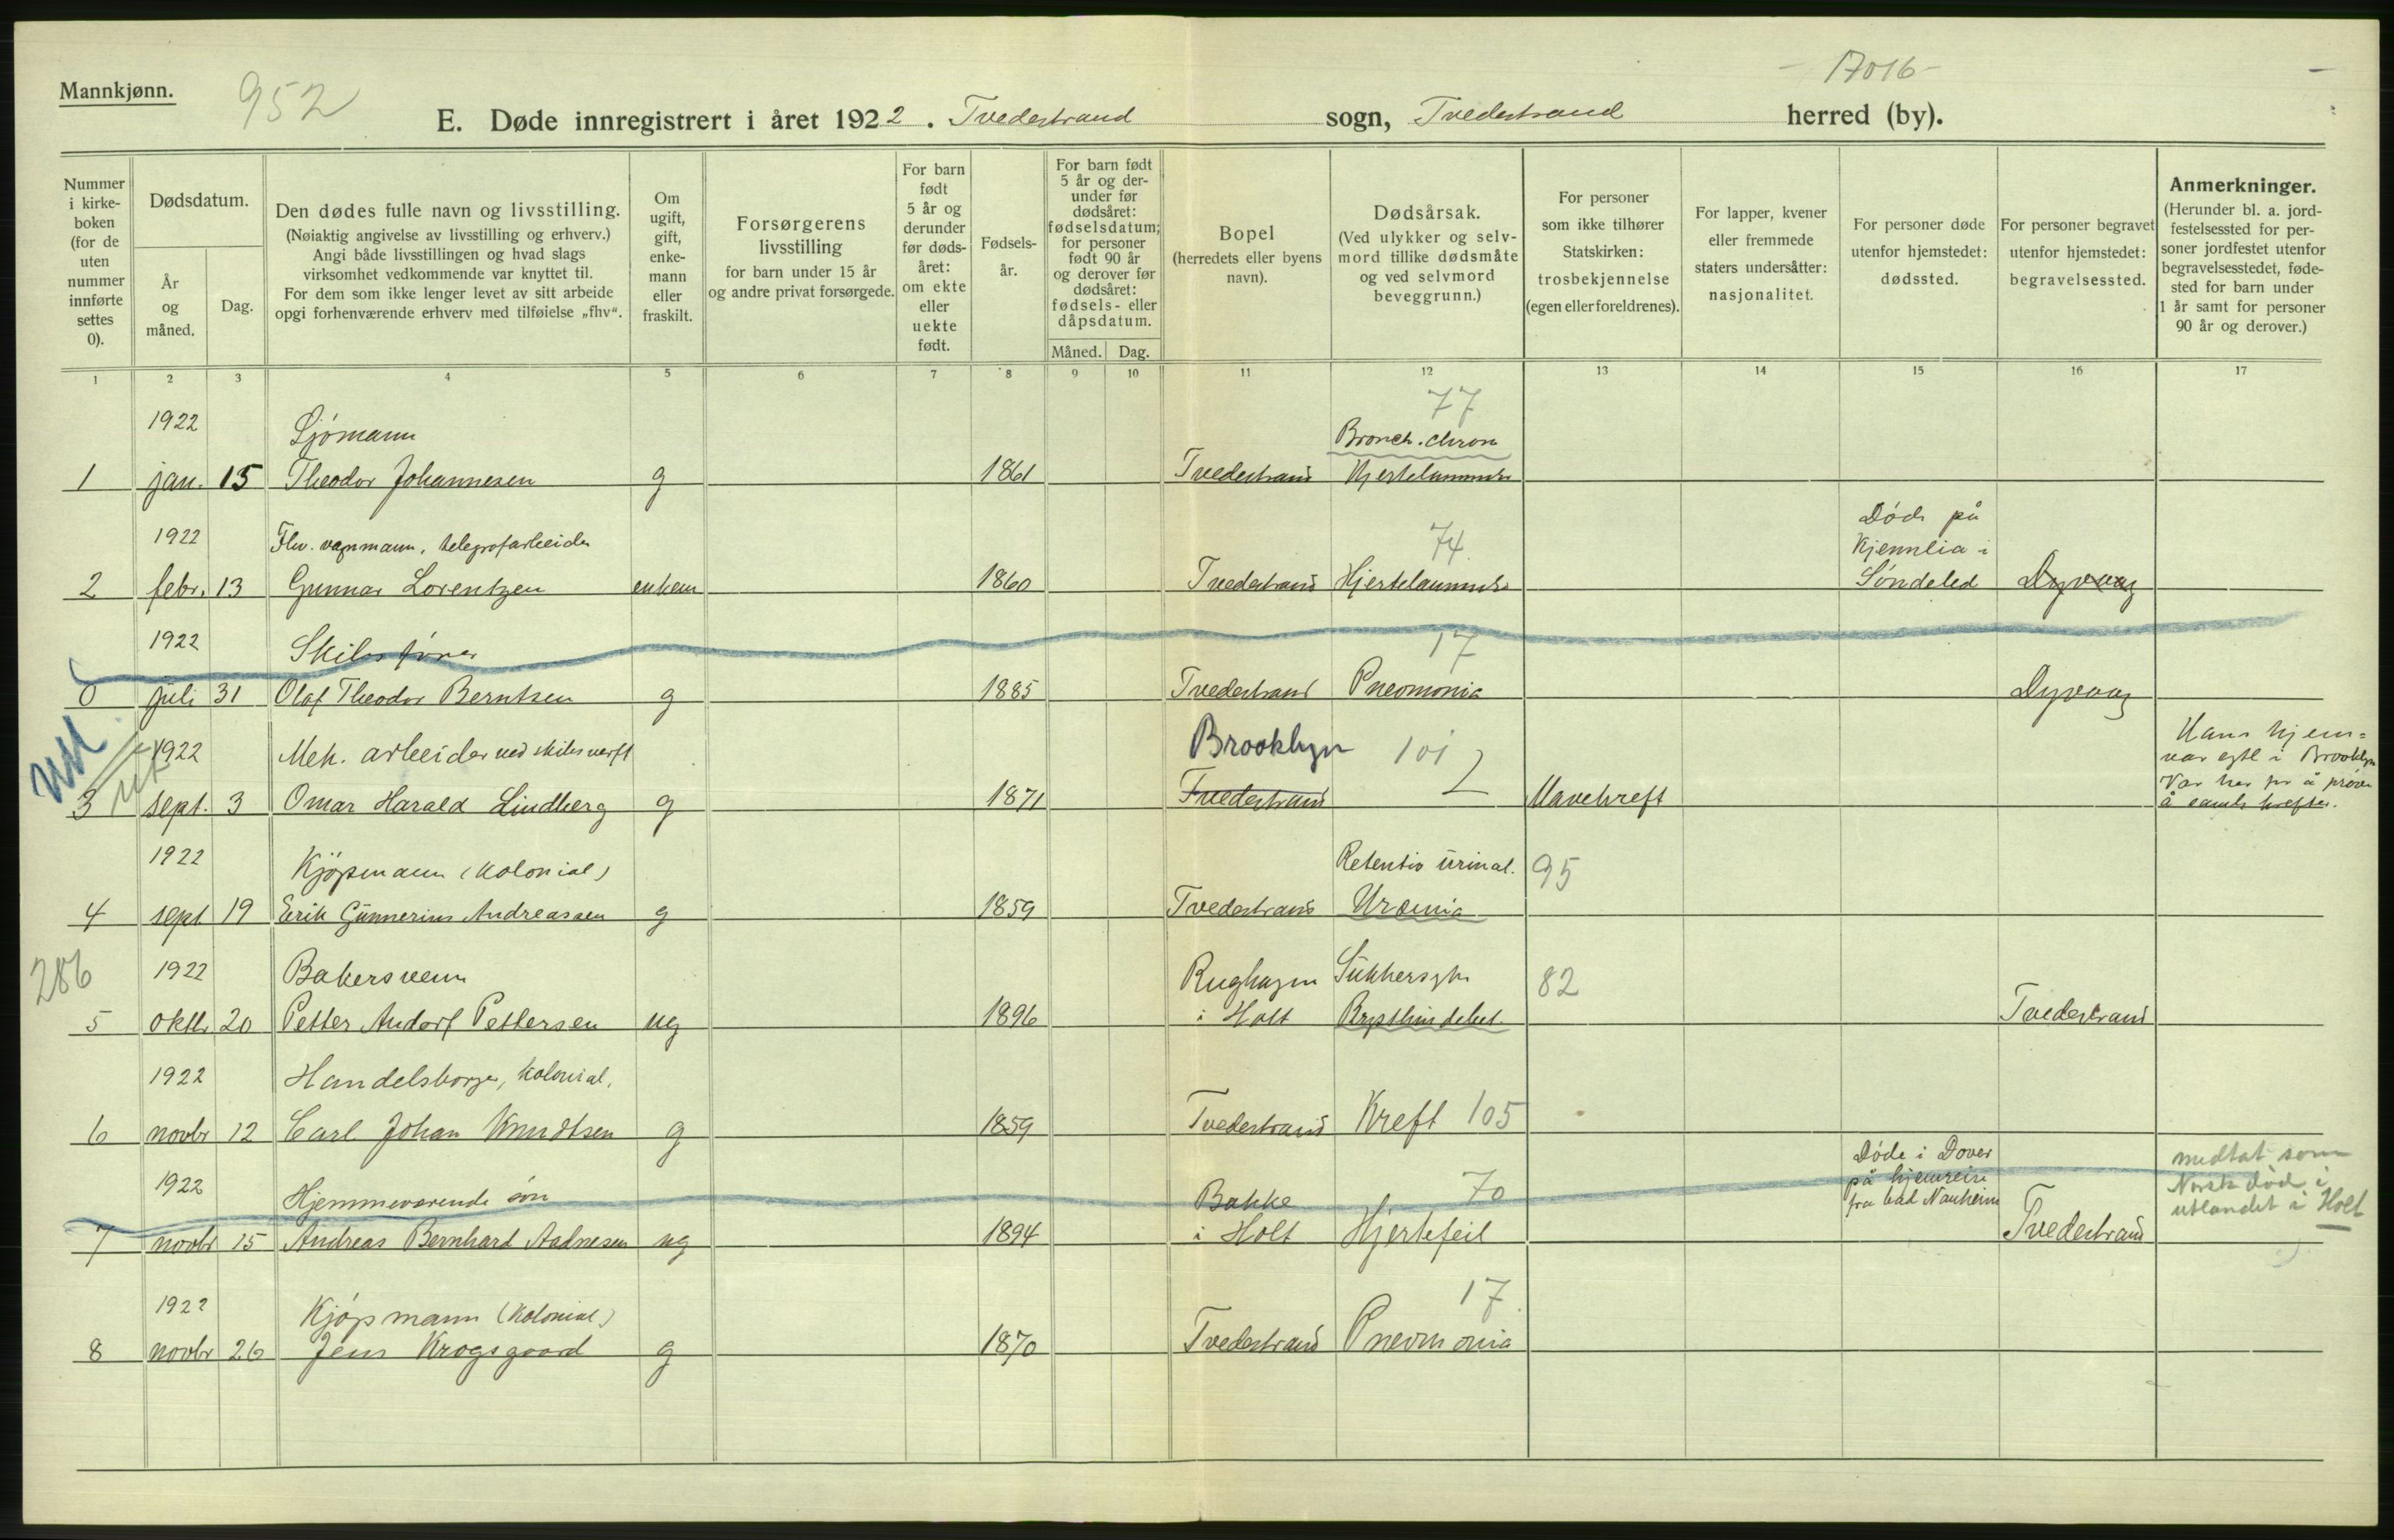 Mannkjønn.
952
17016
E. Døde innregistrert i året 1922. Tvedestrand sogn, Tvedestrand herred (by).
Nummer i kirkeboken (for de uten nummer innførte settes 0).
Dødsdatum.
År og måned.
Dag.
Den dødes fulle navn og livsstilling.
(Nøiaktig angivelse av livsstilling og erhverv.)
Angi både livsstillingen og hvad slags
virksomhet vedkommende var knyttet til.
For dem som ikke lenger levet av sitt arbeide
opgi forhenværende erhverv med tilføielse „fhv“.
Om ugift, gift, enkemann eller fraskilt.
Forsørgerens livsstilling
for barn under 15 år
og andre privat forsørgede.
For barn født 5 år og derunder før dødsåret: om ekte eller uekte født.
Fødselsår.
For barn født 5 år og derunder før dødsåret: fødselsdatum; for personer født 90 år og derover før dødsåret: fødsels- eller dåpsdatum.
Måned. Dag.
Bopel
(herredets eller byens navn).
Dødsårsak.
(Ved ulykker og selvmord tillike dødsmåte og ved selvmord beveggrunn.)
For personer som ikke tilhører Statskirken: trosbekjennelse (egen eller foreldrenes).
For lapper, kvener eller fremmede staters undersåtter: nasjonalitet.
For personer døde utenfor hjemstedet: dødssted.
For personer begravet utenfor hjemstedet: begravelsessted.
Anmerkninger.
(Herunder bl. a. jordfestelsessted for personer jordfestet utenfor begravelsesstedet, fødested for barn under 1 år samt for personer 90 år og derover.)
1 2 3 4 5 6 7 8 9 10 11 12 13 14 15 16 17
77
1922 Sjömann Bronch. chron
1 jan. 15 Theodor Johannesen g 1861 Tvedestrand Hjertelammelse
Död på
1922 Fhv. vognmann, telegrafarbeider 74 Kjennlia i
2 febr. 13 Gunnar Lorentzen enkem 1860 Tvedestrand Hjertelammelse Söndeled Dyvaag
1922 Skibsförer 17
0 juli 31 Olaf Theodor Berntsen g 1885 Tvedestrand Pneomonia Dyvaag
1922 Mek. arbeider ved skibsverft Brooklyn 101 Hans hjem=
var egtl i Brooklyn
Var her for å pröve
3 sept. 3 Omar Harald Lindberg g 1871 Tvedestrand Mavekreft å samle krefter.
1922 Kjöpmann (kolonial) Retentio urinae. 95
4 sept 19 Erik Gunnerius Andreassen g 1859 Tvedestrand Uræmia
286
1922 Bakersvenn Rughagen Sukkersyke 82
5 oktbr 20 Petter Andorf Pettersen ug 1896 i Holt Brysthindebet. Tvedestrand
1922 Handelsborger, kolonial.
6 novbr 12 Carl Johan Knudtsen g 1859 Tvedestrand Kreft 105
Döde i Dover medtat som
1922 Hjemmeværende sön Bakke 70 på hjemreise Norsk död i
fra bad Nauheim utlandet i Holt
7 novbr 15 Andreas Bernhard Aadnesen ug 1894 i Holt Hjertefeil Tvedestrand
1922 Kjöpmann (Kolonial) 17
8 novbr 26 Jens Krogsgaard g 1870 Tvedestrand Pneomonia